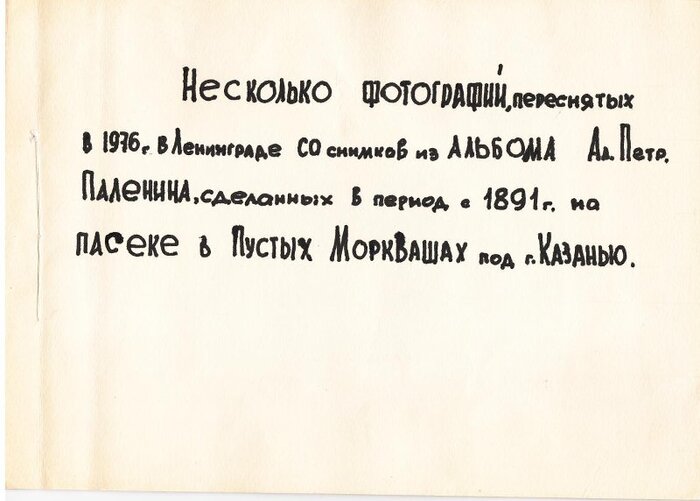 Несколько фотографий, переснятых
в 1976г. в Ленинграде со снимков из АЛЬБОМА Ал. Петр.
Паленина, сделанных в период с 1891г. на
пасеке в Пустых Моркквашах под г. Казанью.